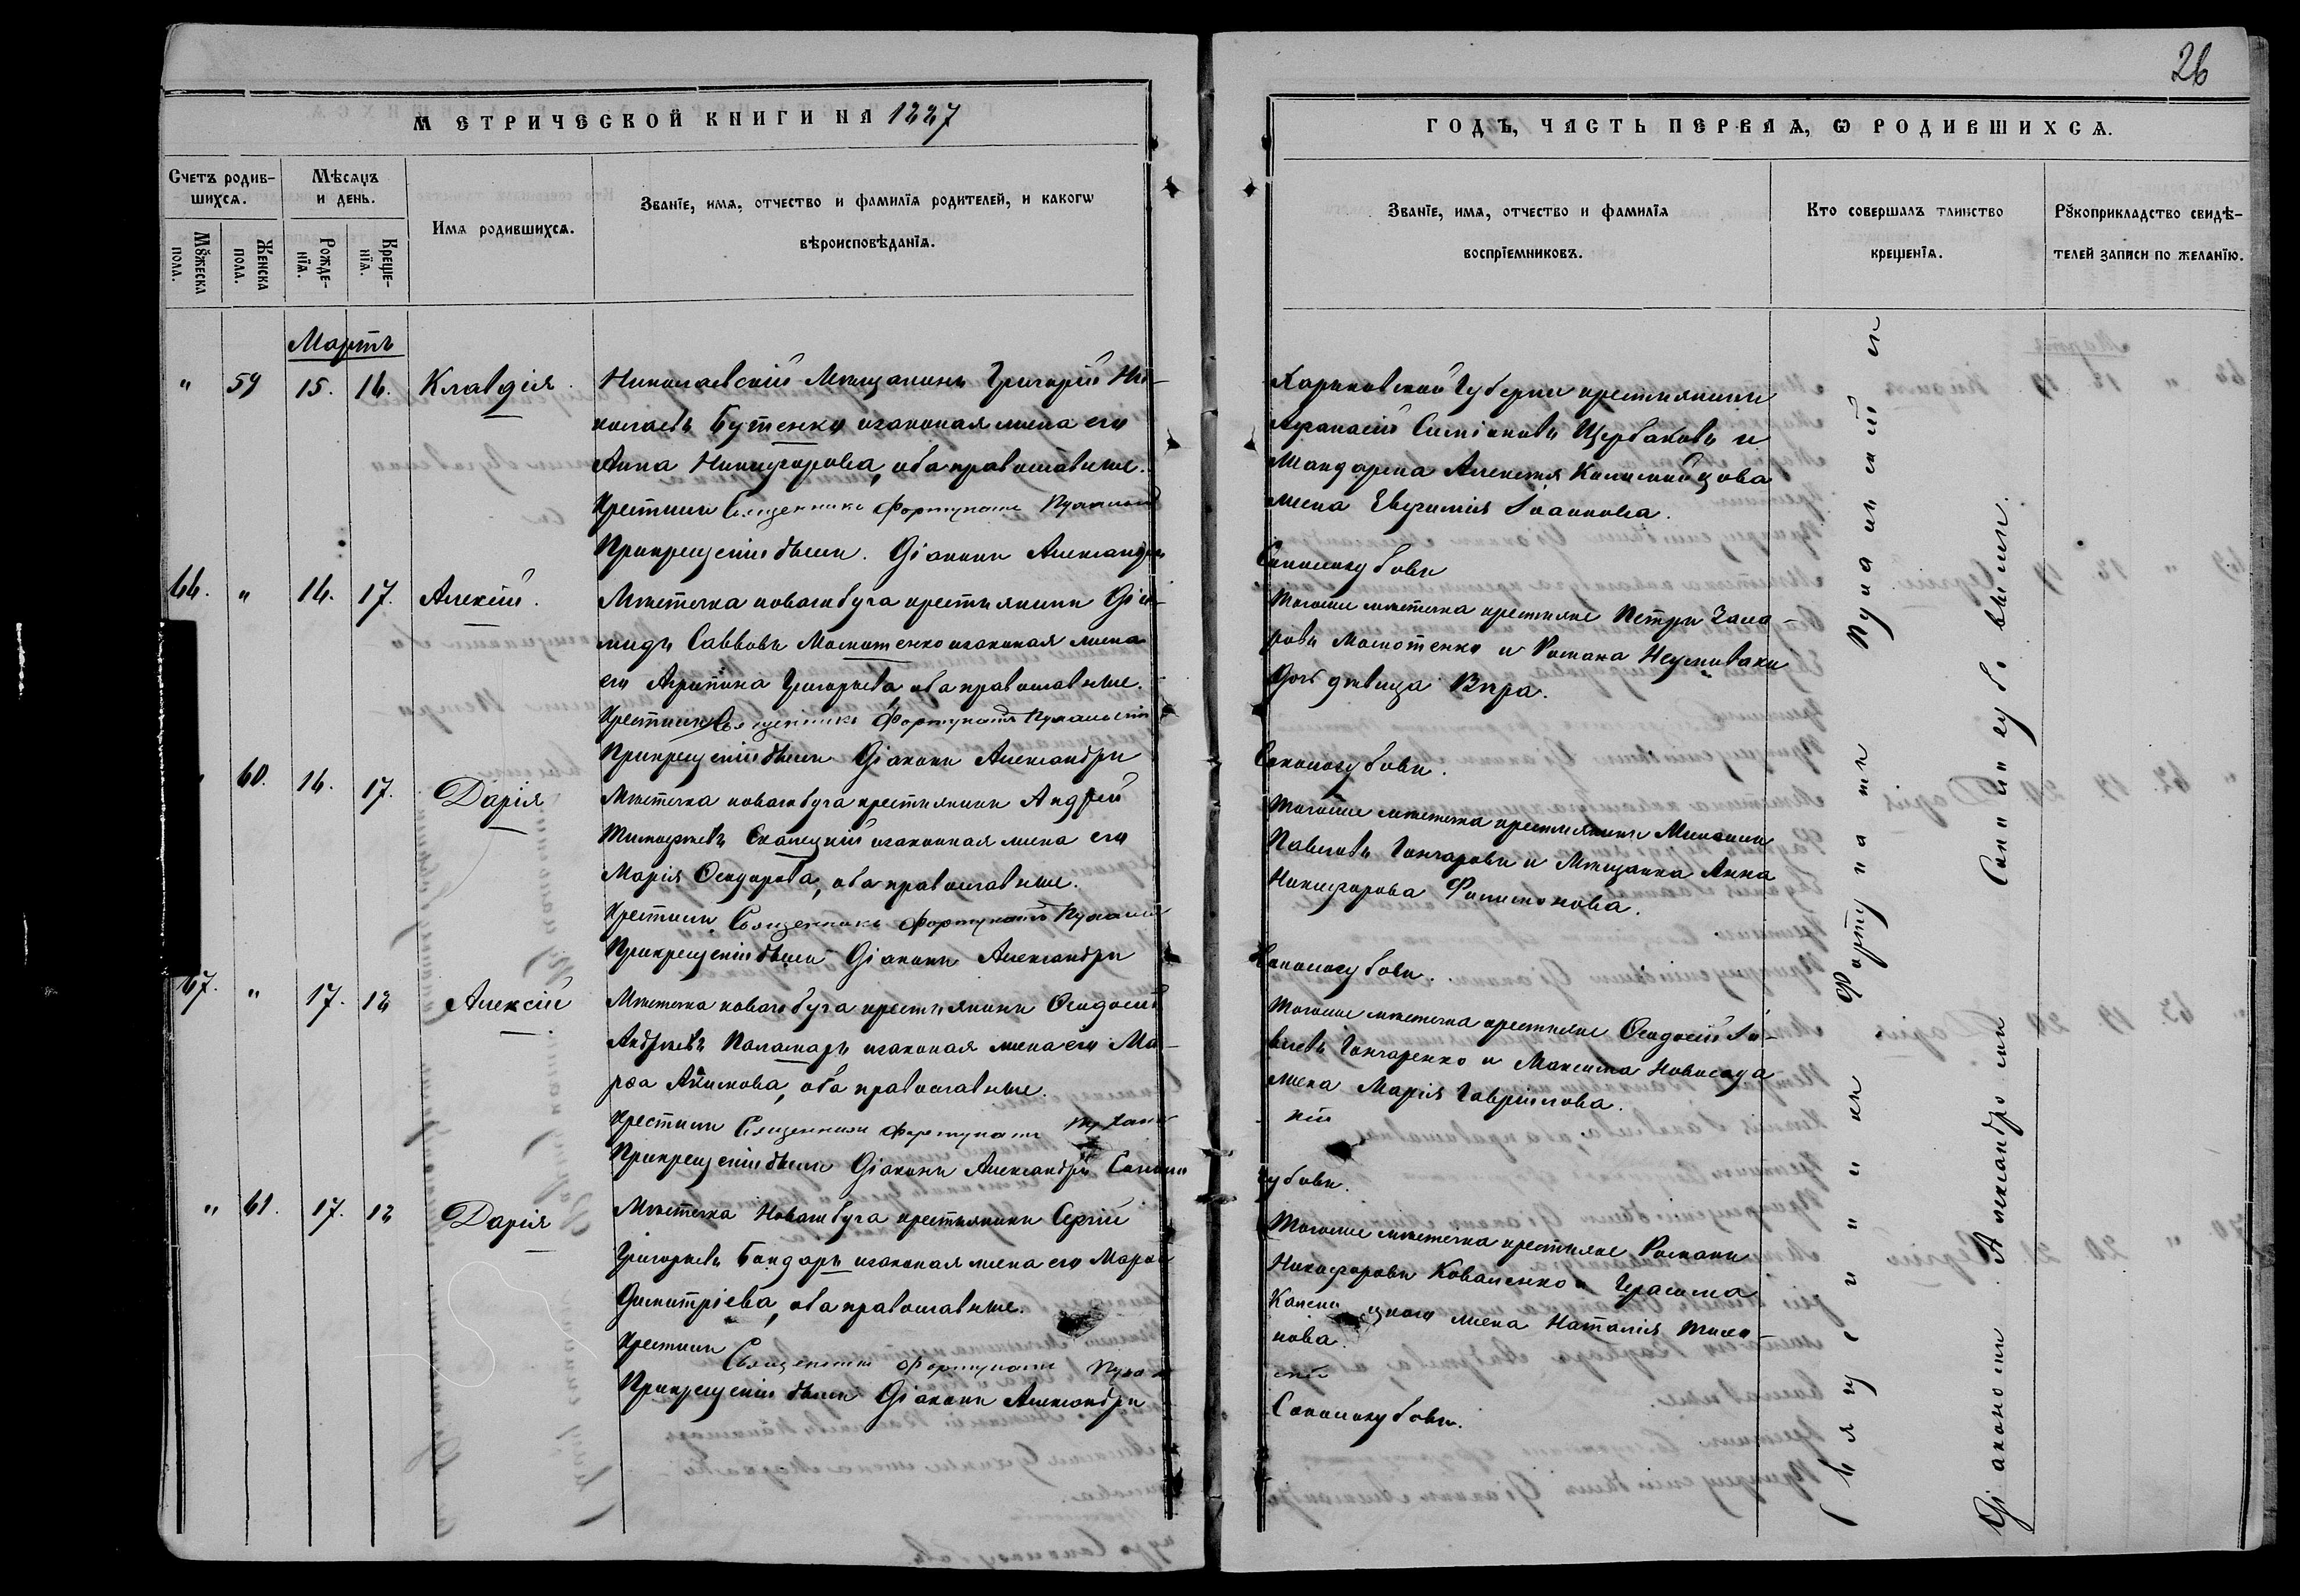 26
МЕТРИЧЕСКОЙ КНИГИ НА 1887
ГОДЪ, ЧАСТЬ ПЕРВАЯ, Ѡ РОДИВШИХСѦ.
Счетъ родив-
шихсѧ.
Мѣсяцъ
и день.
Мꙋжеска
пола.
Женска
пола.
Рожде-
нїѧ.
Креще-
нїѧ.
Имѧ родившихсѧ.
Званїе, имѧ, отчество и фамилїѧ родителей, и какогѡ
вѣроисповѣданїѧ.
Званїе, имѧ, отчество и фамилїѧ
воспрїемниковъ.
Кто совершалъ таинство
крещенїѧ.
Рꙋкоприкладство свидѣ-
телей записи по желанїю.
Мартъ
" 59 15. 16. Клавдія
Николаевскій Мѣщанинъ Григорій Ни-
колаевъ Бутенко изаконая жена его
Анна Никифорова, оба православные.
Крестилъ Священникъ Фортунатъ
Прикрещеніи былъ Діаконъ Александръ
Харьковской Губерніи крестьянинъ
Афанасій Симіоновъ Щербаковъ и
Жандарма Алексѣя Коломойцова
жена Евфимія Іоаннова.
Сокологубовъ
66. " 16. 17. Алексій.
Мѣстечка новагобуга крестьянинъ Діо-
мидъ Саввовъ изаконая жена
его Агрипина Григорьева, оба православные.
Крестилъ Священникъ Фортунатъ
Прикрещеніи былъ Діаконъ Александръ
Тогоже мѣстечка крестьяне Петръ Заха-
ровъ и Романа
дочь дѣвица Вѣра.
Сокологубовъ.
" 60. 16. 17. Дарія
Мѣстечка новагобуга крестьянинъ Андрей
Тимофѣевъ Скалецкій изаконная жена его
Марія Ѳеодорова, оба православные.
Крестилъ Священникъ Фортунатъ
Прикрещеніи былъ Діаконъ Александръ
Тогоже мѣстечка крестьянинъ
Павловъ Гончаровъ и Мѣщанка Анна
Никифорова Филимонова.
Сокологубовъ.
67. " 17. 18 Алексій
Мѣстечка новагобуга крестьянинъ Ѳеодосій
Андреевъ Паламарь изаконая жена его Ма-
рѳа Акимова, оба православные.
Крестилъ Священникъ Фортунатъ
Прикрещеніи былъ Діаконъ Александръ Соколо
Тогоже мѣстечка крестьяне Ѳеодосій
Гончаренко и Максима Новосада
жена Марія Гаврилова.
кій
губовъ.
" 61. 17. 18 Дарія
Мѣстечка Новагобуга крестьянинъ Сергій
Григорьевъ Бондарь изаконая жена его Марѳа
Димитріева, оба православные.
Крестилъ
Священникъ Фортунатъ
Прикрещеніи былъ Діаконъ Александръ
Тогоже мѣстечка крестьяне Романъ
Никифоровъ Коваленко и Герасима
жена Наталія
нова.
Сокологубовъ.
Священникъ Фортунатъ
Діакономъ Александромъ Сокологубовымъ.